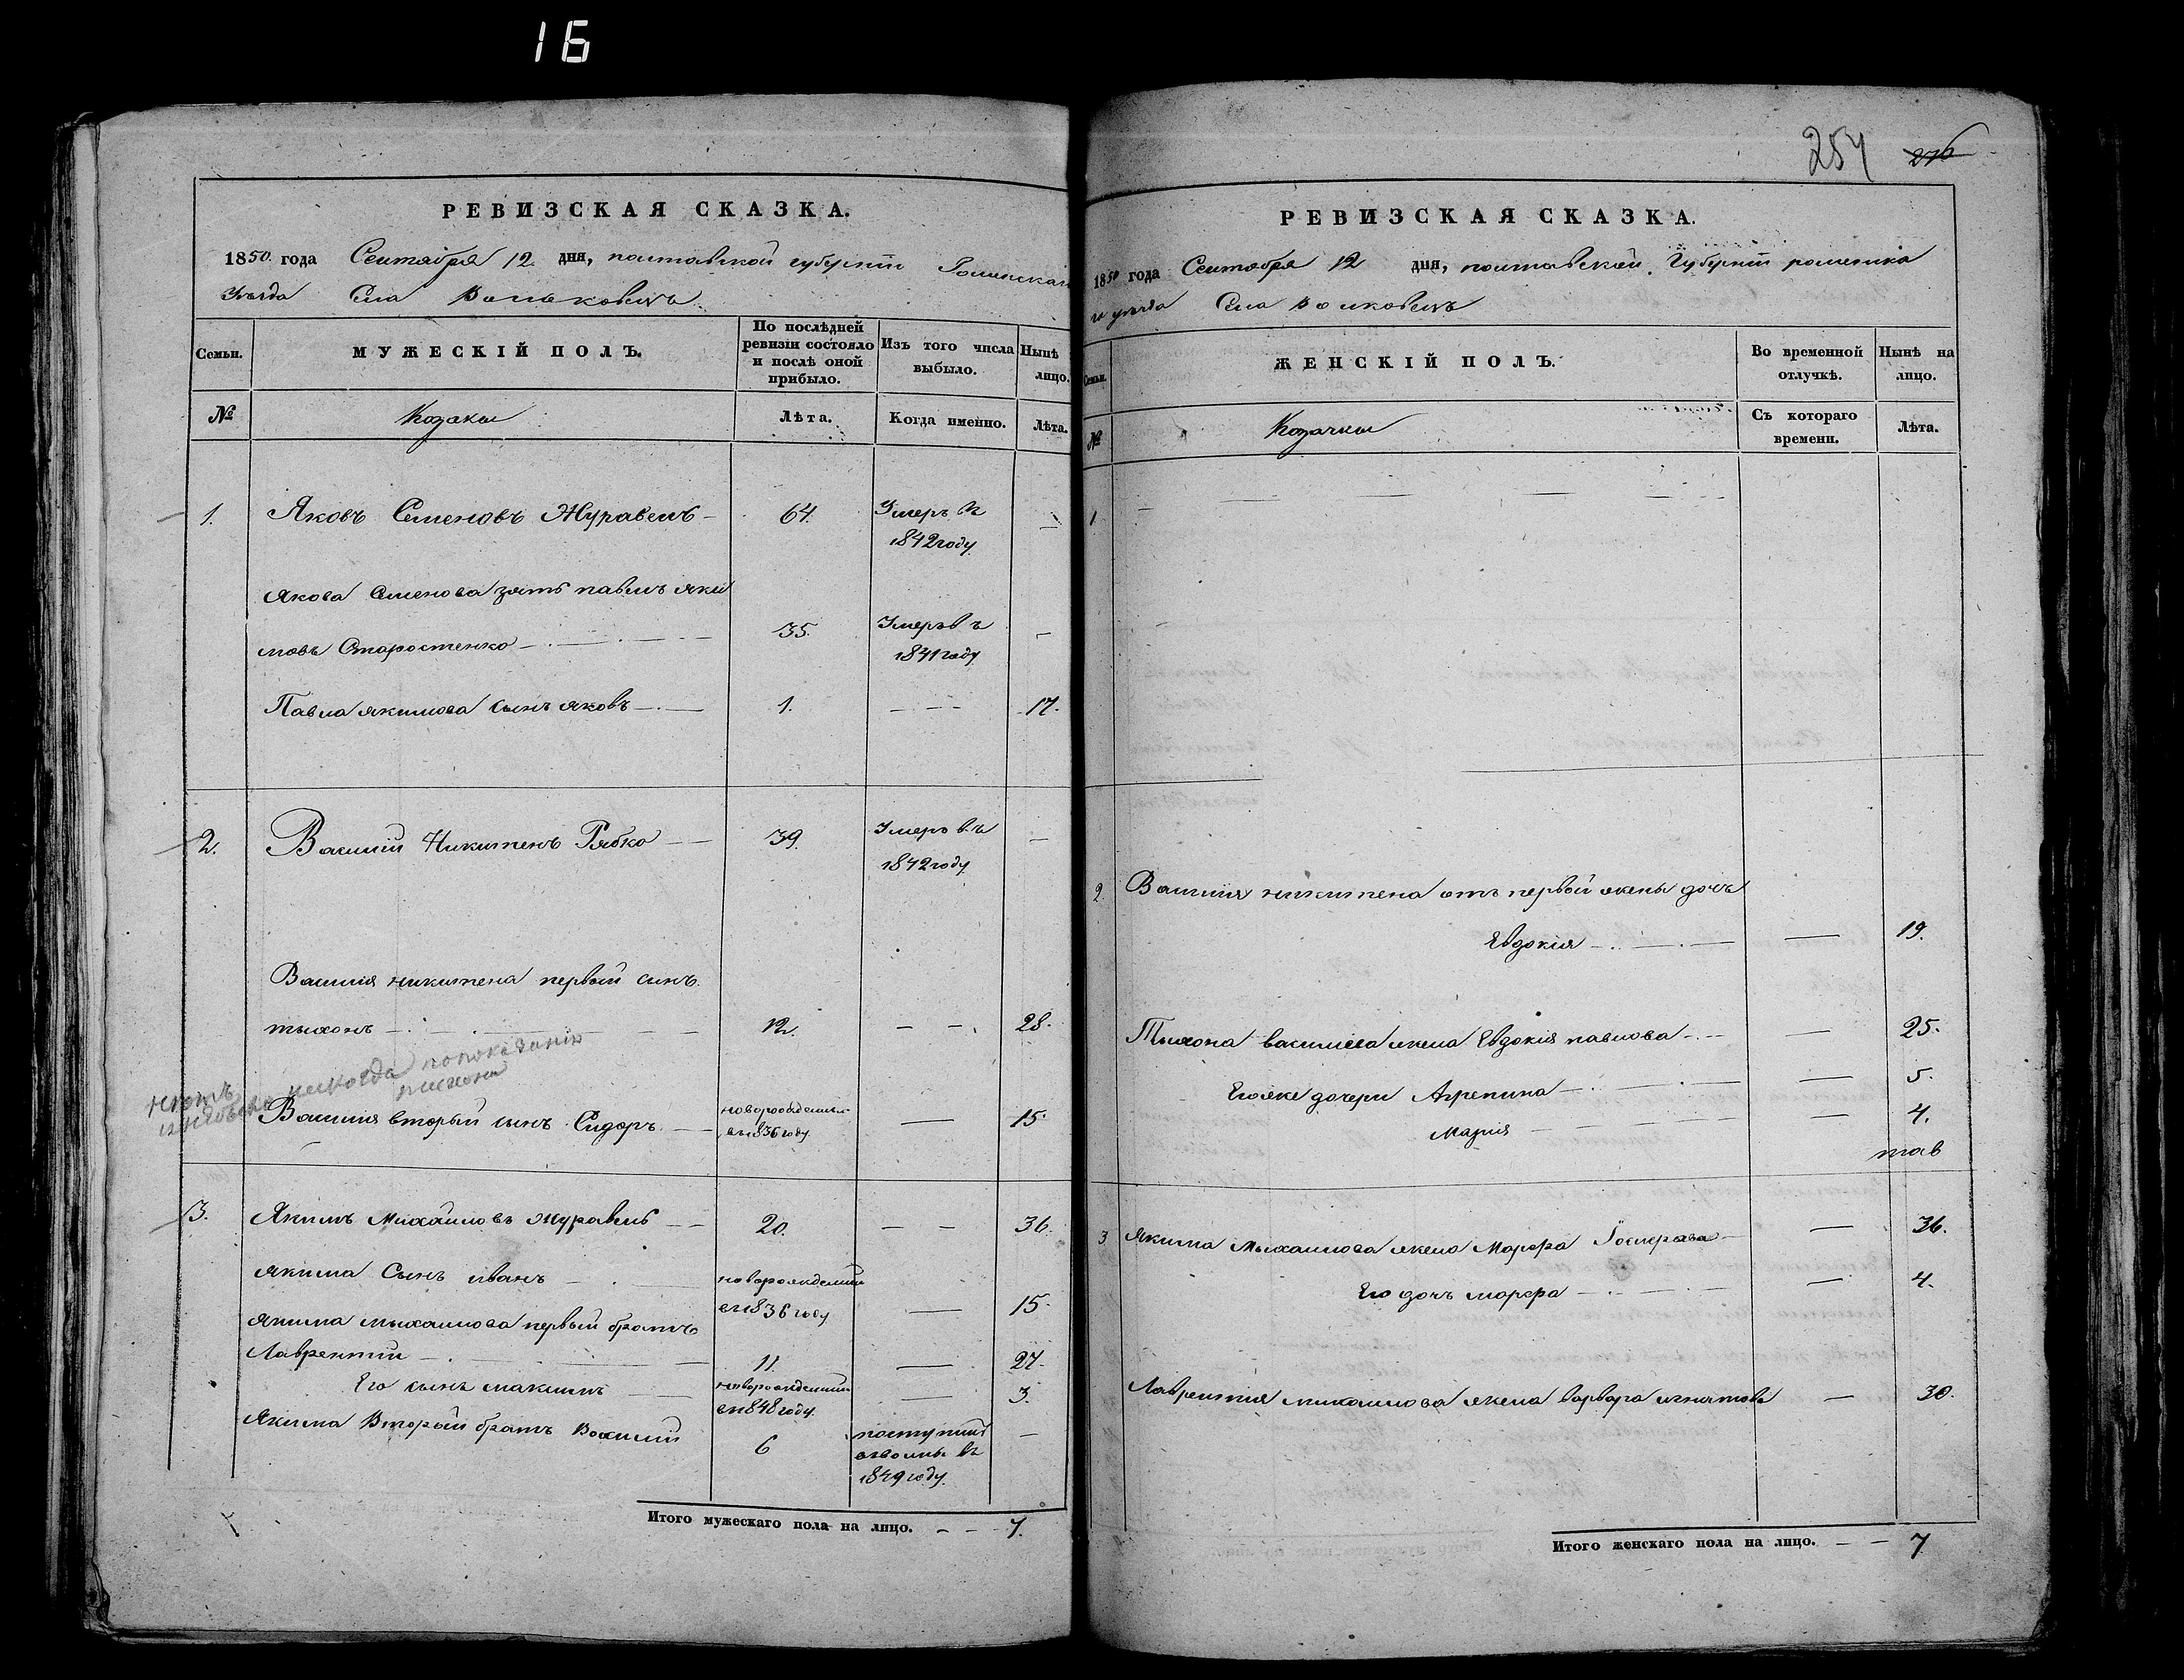 16
РЕВИЗСКАЯ СКАЗКА.
1850. года Сентября 12. дня, полтавской губерніи Роминскаго
Уѣзда Села Вольковецъ.
Семьи. МУЖЕСКІЙ ПОЛЪ. По послѣдней ревизіи состояло и послѣ оной прибыло. Изъ того числа выбыло. Нынѣ лицо.
№ Козаки Лѣта. Когда именно. Лѣта.
1. Яковъ Семеновъ Журавель 64. Умеръ въ
1842 году
Якова Семенова зять павелъ яки
мовъ Старостенко 35. Умеръ въ
1841 году
Павла якимова сынъ яковъ 1. 17.
2. Василій Никитенъ Рябко 39. Умеръ въ
1842 году
Василія никитена первый сынъ.
тихонъ 12. 28.
нетъ никогда по показанію
тихона
Василія вторый сынъ Сидоръ новорожденый 15.
въ 1836 году
3. Якимъ Михаиловъ Журавель 20. 36.
Якима Сынъ иванъ новорожденный
въ 1836 году 15.
Якима михаилова первый братъ
Лаврентій 11. 27.
Его сынъ максимъ новорожденный 3.
въ 1848 году
Якима Вторый братъ Василій 6 поступилъ
1849 году
Итого мужескаго пола на лицо. 7.
254 276
РЕВИЗСКАЯ СКАЗКА.
1850 года Сентября 12 дня, полтавской Губерніи роменска
го уѣзда Села Волковецъ
Семьи. ЖЕНСКІЙ ПОЛЪ. Во временной отлучкѣ. Нынѣ на лицо.
№ Козачки Съ котораго времени. Лѣта.
1
2. Василія никитена отъ первой жены дочь
Евдокія 19.
Тихона василіева жена Евдокія павлова 25.
Его же дочери Агрепина 5.
Марія 4.
3 Якима Михаилова жена Марфа 36.
Его дочь марфа 4.
Лаврентія михаилова жена варвара игнатова 30.
Итого женскаго пола на лицо. 7